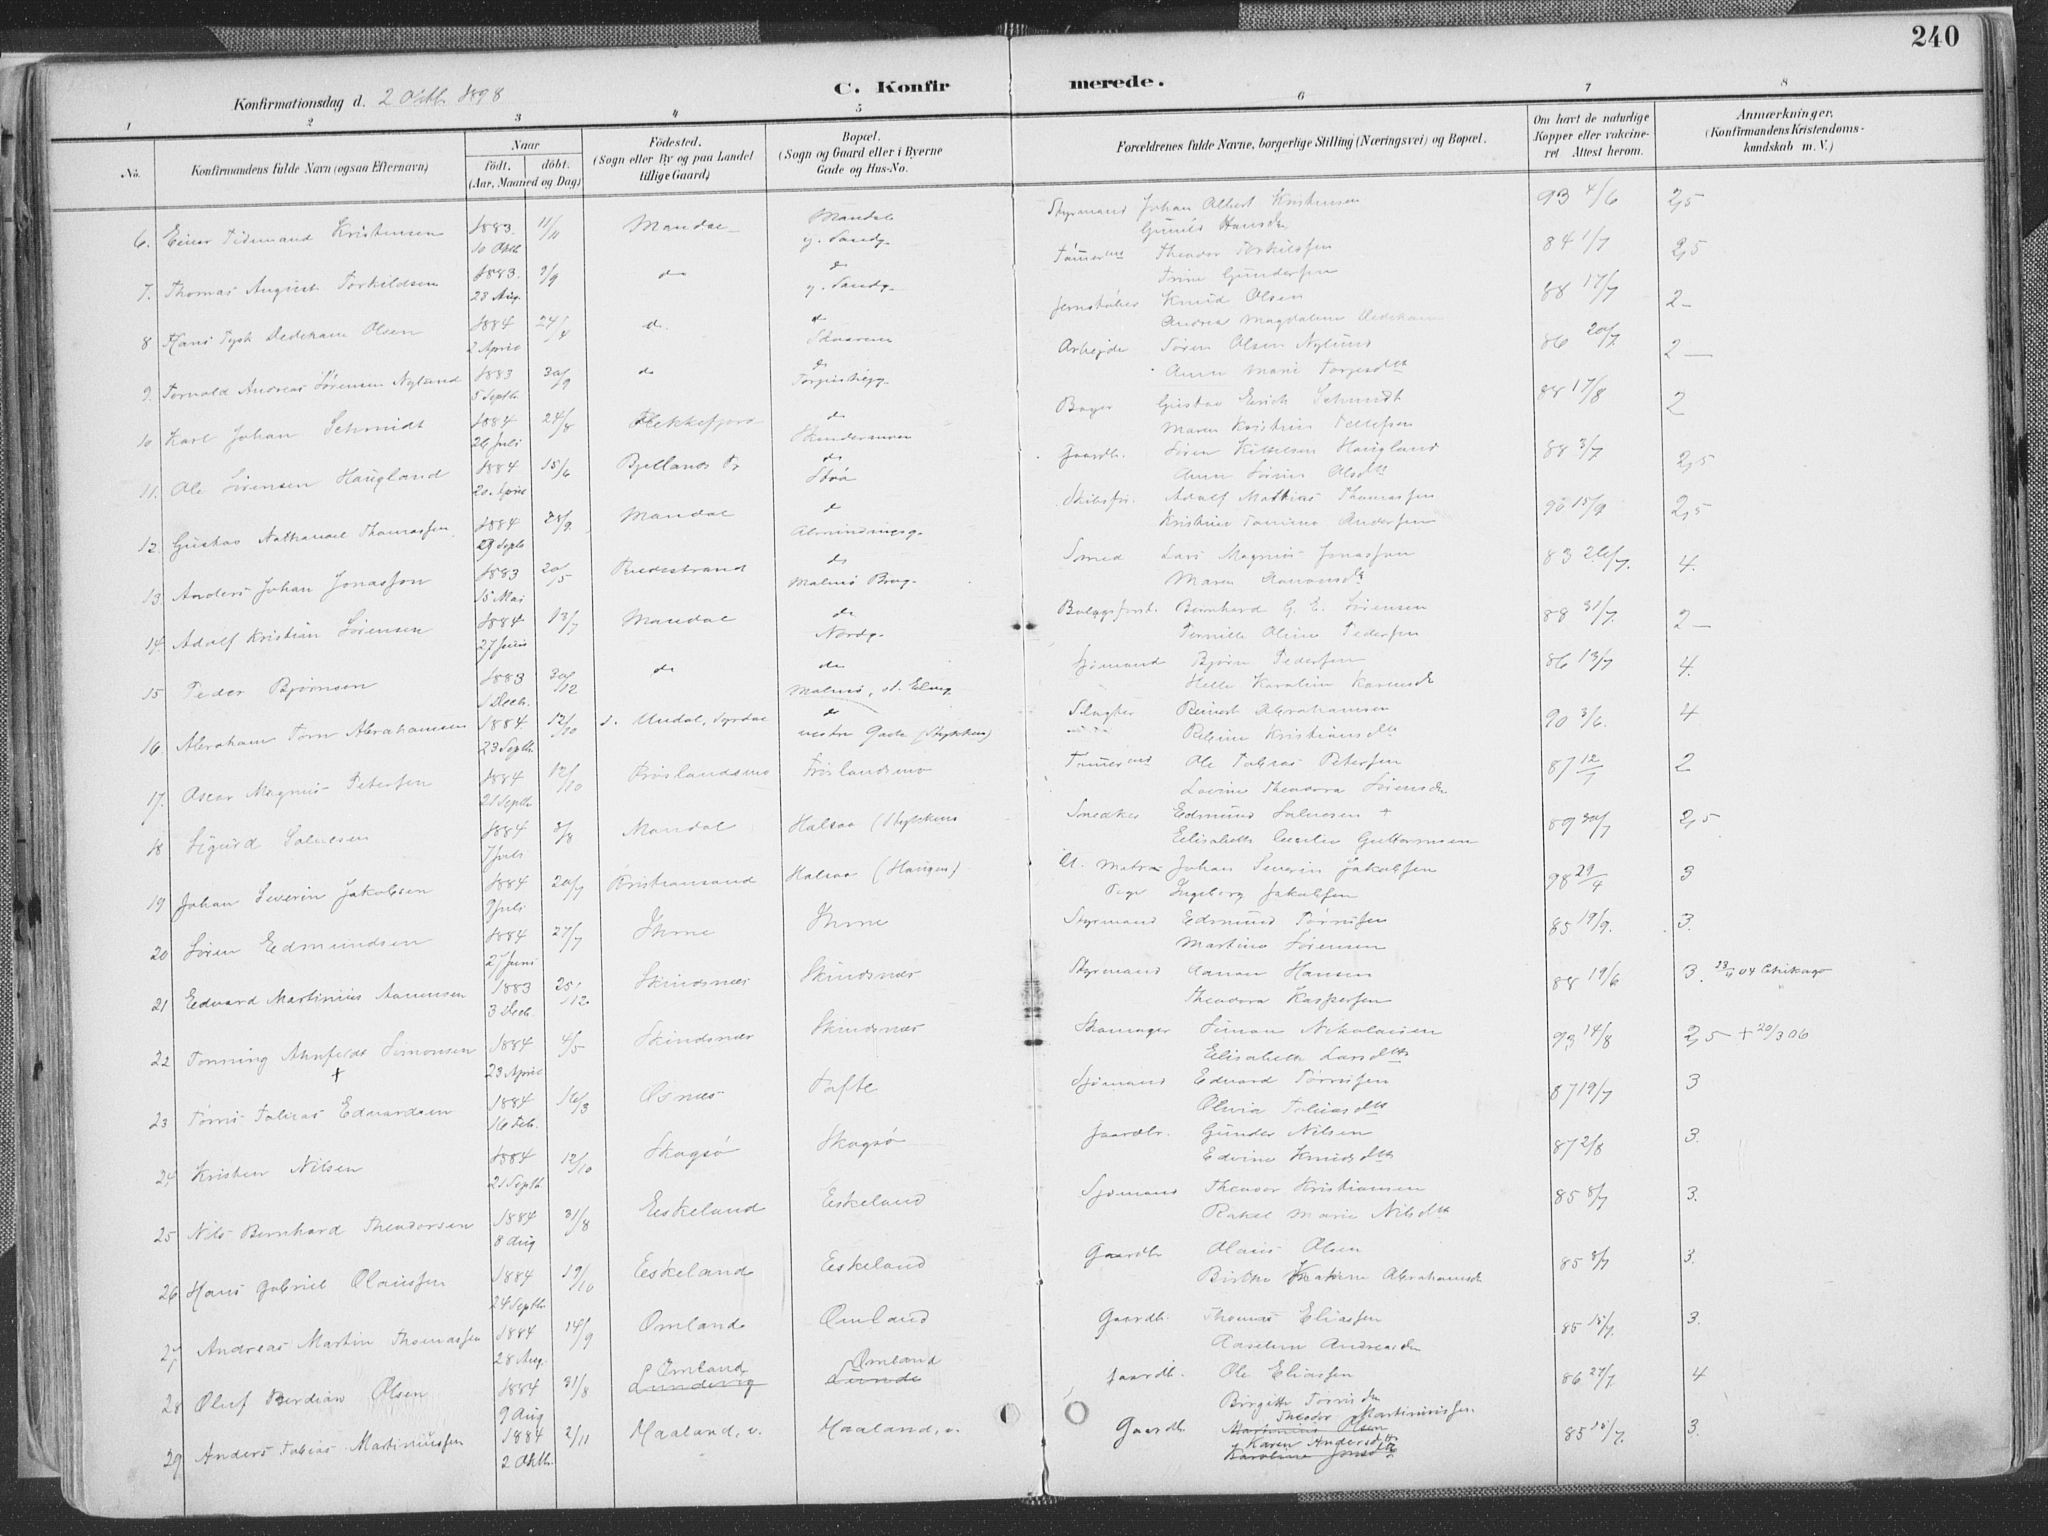 240
C. Konfirmerede.
Konfirmationsdag d. 2 Oktb. 1898
1 2 3 4 5 6 7 8
No.
Konfirmandens fulde Navn (ogsaa Efternavn)
Naar
födt. döbt.
(Aar, Maaned og Dag)
Födested.
(Sogn eller By og paa Landet
tillige Gaard)
Bopæl.
(Sogn og Gaard eller i Byerne
Gade og Hus-No.
Forældrenes fulde Navne, borgerlige Stilling (Næringsvei) og Bopæl.
Om havt de naturlige
Kopper eller vakcine-
ret Attest herom.
Anmærkninger.
(Konfirmandens Kristendoms-
kundskab m. V.)
6. Einar Tidemand Kristensen 1883. 10 Oktb. 11/11 Mandal Mandal Styrmand Johan Albert Kristensen 93 4/6 2,5
Gunild Hansdr
7. Thomas August Torkildsen 1883. 28 Aug. 9/9 do do Tömermd Theodor Torkildsen 84 1/7 2,5
Trine Gundersen
8 Hans Dedekam Olsen 1884 2 April 24/4 do do Knud Olsen 88 17/7 2
Andrea Magdalene Dedekam
9. Torvald Andreas Sörensen Nylund 1883 5 Septb. 30/9 do do Arbejder Sören Olsen Nylund 86 20/7 2
Anne Marie Torjesdtr
10 Karl Johan Schmidt 1884 26 Juli 24/8 Flekkefjord do Bager Gustav Erich Schmidt 88 17/8 2
Maren Kristine Tellefsen
11. Ole Sörensen Haugland 1884 20 April 15/6 Bjellands Pr do Gaardb. Sören Kittelsen Haugland 88 3/7 2,5
Anne Sörine Olsdtr
12. Gustav Nathanael Thomassen 1884 29/9. Mandal do Almindingsg. Skibsför. Adolf Mathias Thomassen 90 15/9 2,5
Kristine Andersen
13. Anders Johan Jonassen 1883 15 Mai 20/5 do Malmö Smed Lars Magnus Jonassen 83 26/7. 4.
Maren Aanensdtr
14 Adolf Kristian Sörensen 1884 27 Juni 13/7 Mandal do Nordg. Bernhard G. E. Sörensen 88 31/7. 2
Pernille Oline Pedersen
15 Peder Björnsen 1883 1 Decb. 30/12 do do Malmö, Sjömand Björn Pedersen 86 13/7 4.
Helle Karoline
16 Abraham Abrahamsen 1884. 23 Septb. 12/10 s. Undal, do vestre Gade Slagter Reinert Abrahamsen 90 3/6. 4
Kristiansdtr
17. Oscar Magnus Petersen 1884 21 Septb 12/10 Fröslandsmo Fröslandsmo Tömermd Ole Tobias Petersen 87 12/7 2
Lovine Theodora Sörensdr
18 Sigurd Salvesen 1884 7 Juli 3/8 Mandal Halsaa Snedker Edmund Salvesen + 89 30/7 2,5
Elisabeth Cecilie Guttormsen
19 Johan Severin Jakobsen 1884 9 Juli 20/7 Kristiansand Halsaa (Haugen) Johan Severin Jakobsen 98 29/4 3
Pige Ingeborg Jakobsen
20 Sören Edmundsen 1884 27 Juni 27/7 Ihme Ihme Styrmand Edmund Törrissen 85 19/9. 3.
Martine Sörensen
21 Edvard Martinius Aanensen 1883 3 Decb. 25/12 Skindsnæs Skindsnæs Styrmand Aanon Hansen 88 19/6 3. 23/4 04 Chikago
Theodora Kaspersen
22 Tönning Ahnfeldt Simonsen + 1884 23 April 4/5 Skindsnæs Skindsnæs Skomager Simon Nikolaisen 93 14/8 2,5 + 20/3 06
Elisabeth Larsdtr
23 Törris Tobias Edvardsen 1884 16 Feb. 16/3 Osnes Tofte Sjömand Edvard Törrissen 87 19/7 3
Olivia Tobiasdtr
24 Kristen Nilsen 1884 21 Septb. 12/10 Skogsö Skogsö Gaardbr. Gunder Nilsen 87 2/8 3.
Edvine Knudsdtr
25 Nils Bernhard Theodorsen 1884 8 Aug 31/8 Eskeland Eskeland Sjömand Theodor Kristiansen 85 8/7 3.
Rakel Marie Nilsdtr
26 Hans Gabriel Olaussen 1884 24 Septb. 19/10 Eskeland Eskeland Gaardbr. Olaus Olsen 85 8/7 3.
Birthe Abrahamsdr
27 Andreas Martin Thomassen 1884 28 Aug. 14/9 Omland Omland Gaardb. Thomas Eliassen 85 15/7. 3.
Aaselene Andreasdr
28 Oluf Berdian Olsen 1884 9 Aug 31/8 Omland Lundevig Omland Lunde Gaardb. Ole Eliassen 86 27/7. 4
Birgitte Törrisdr
29 Anders Tobias Martiniussen 1884 2 Oktb. 2/11 Haaland, v. Haaland, v. Gaardb. Theodor Martiniussen Martinius Olsen 85 15/7. 3.
Karen Andersdtr
Karoline Jonsdtr